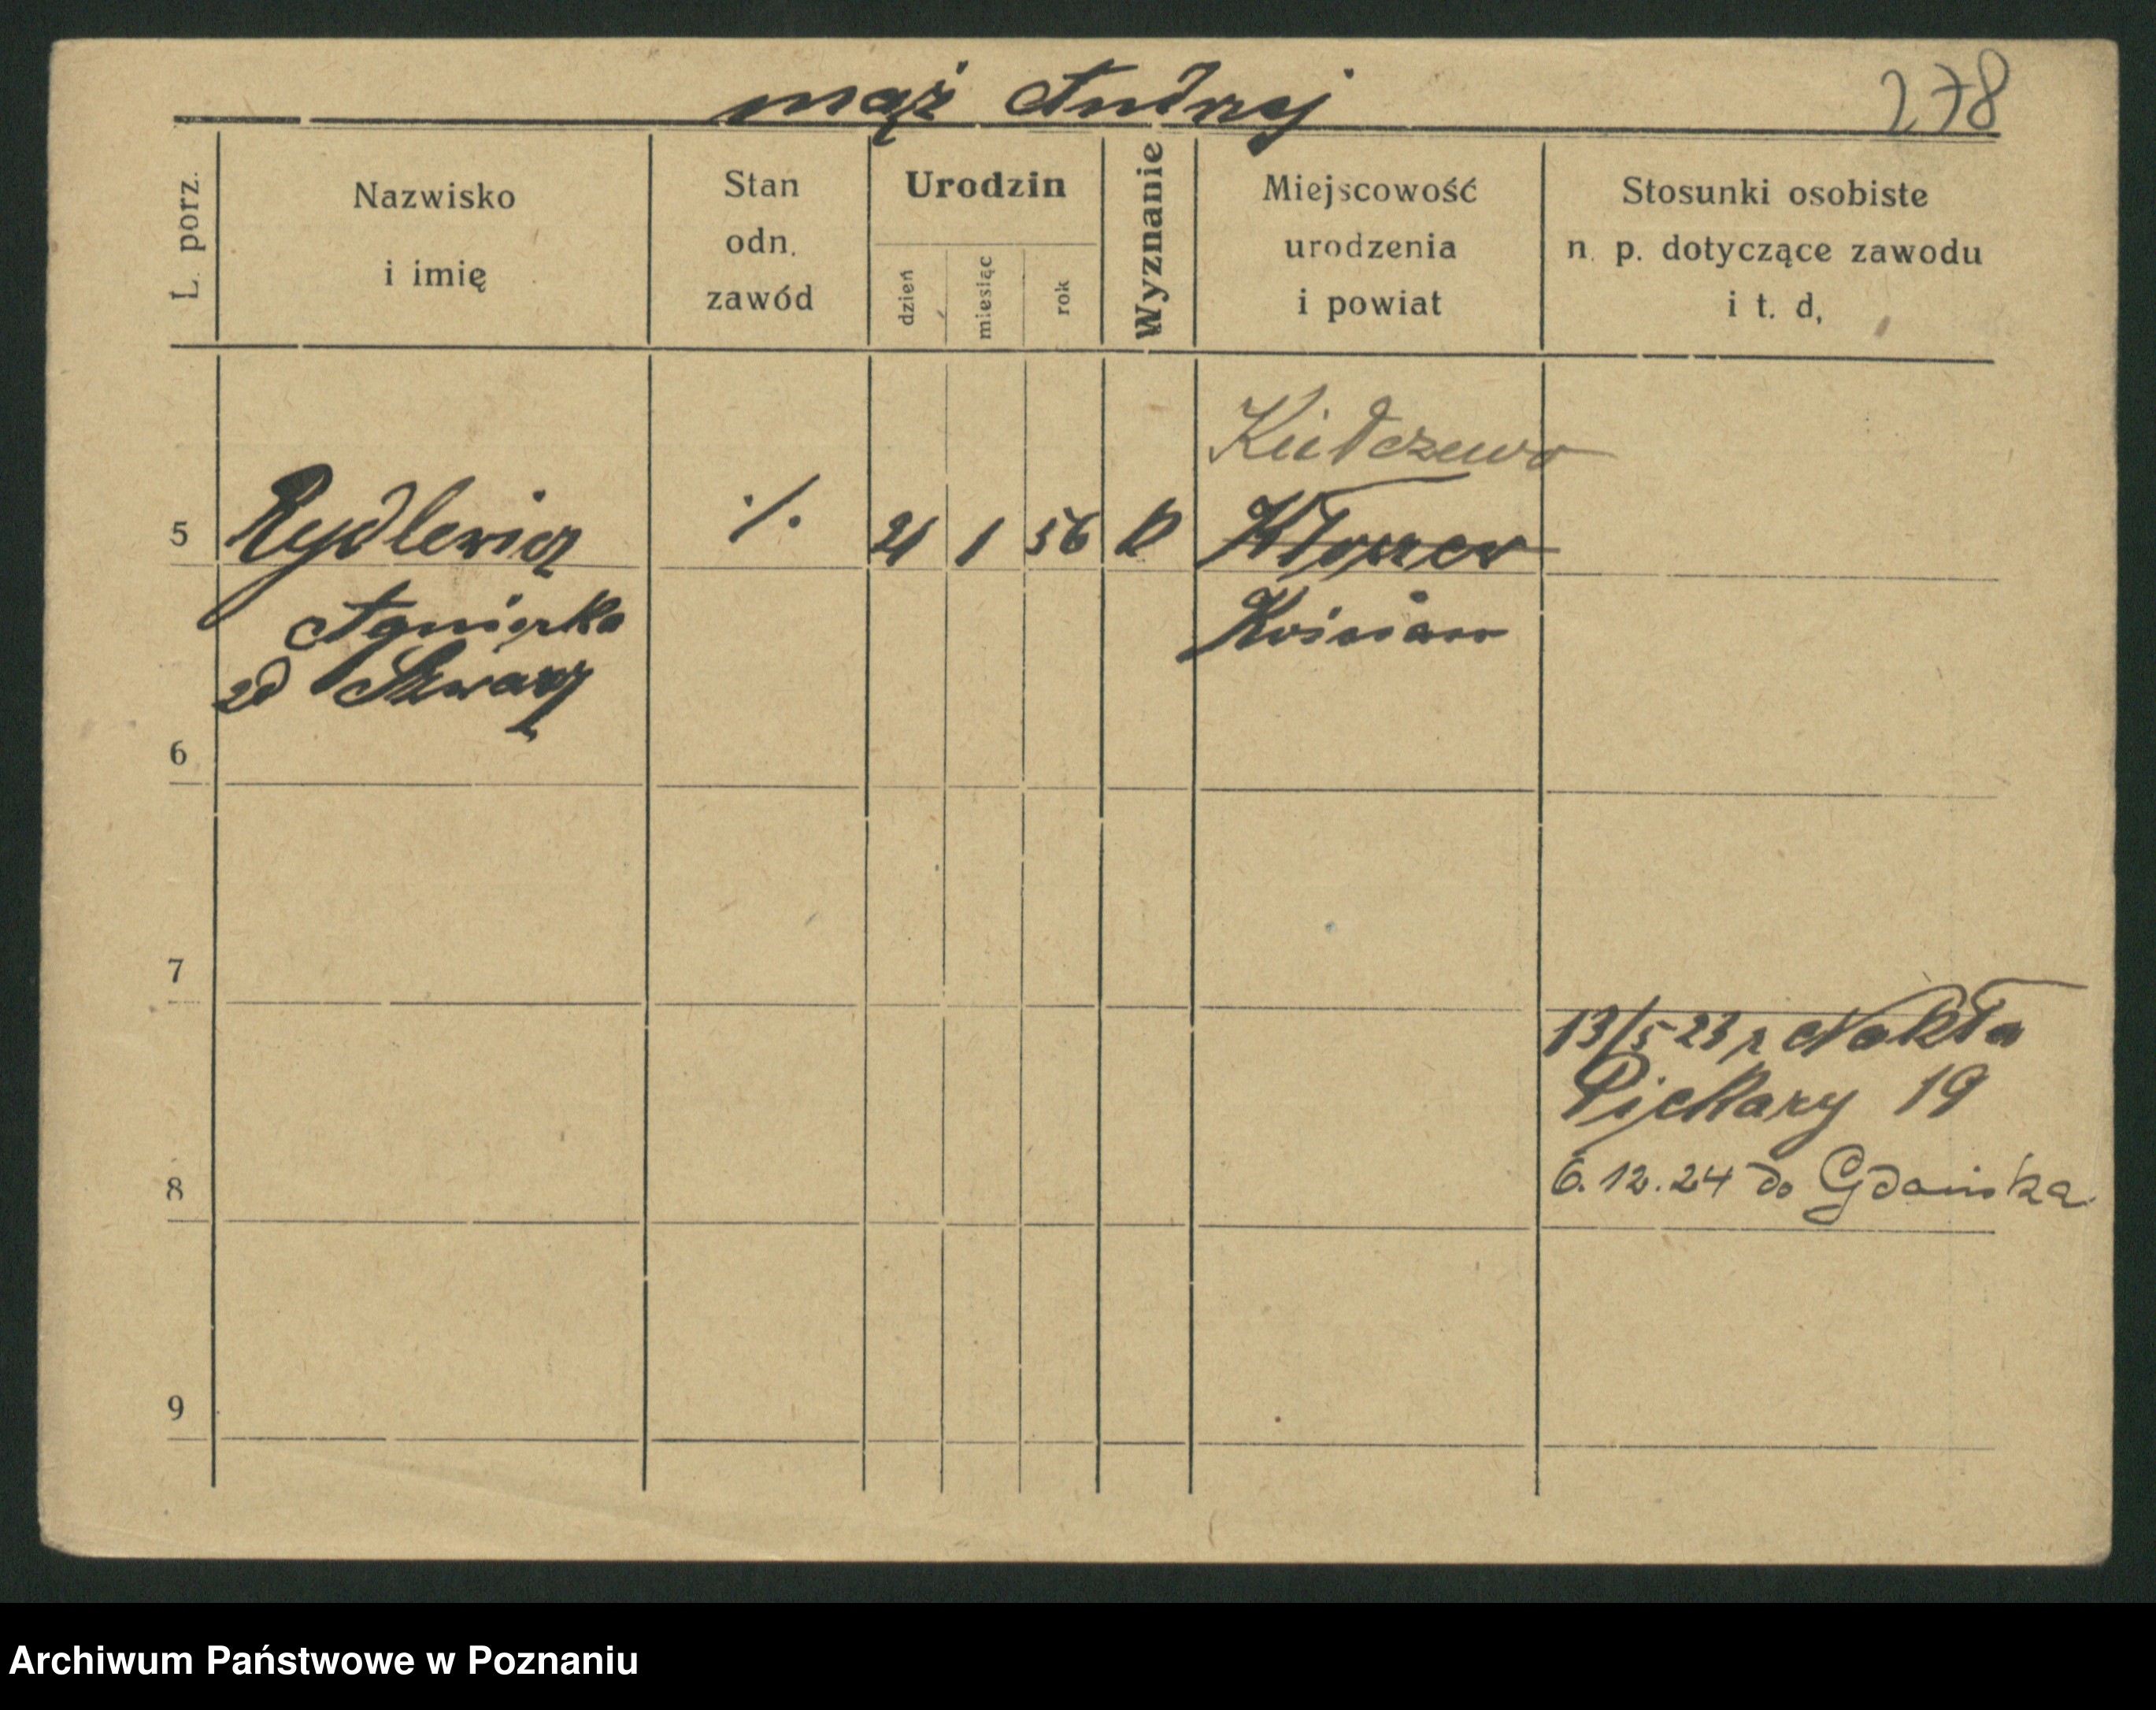 mąż Andrzej
278
L. porz.
Nazwisko
i imię
Stan
odn.
zawód
Urodzin
dzień
miesiąc
rok
Wyznanie
Miejscowość
urodzenia
i powiat
Stosunki osobiste
n. p. dotyczące zawodu
i t. d.
5
Rydlewicz
./.
21 1 56 k
Agnieszka
Kościan
zd
6
7
13/5 23 z Nakła
Piekary 19
8
6.12.24 do Gdańska
9
Archiwum Państwowe w Poznaniu